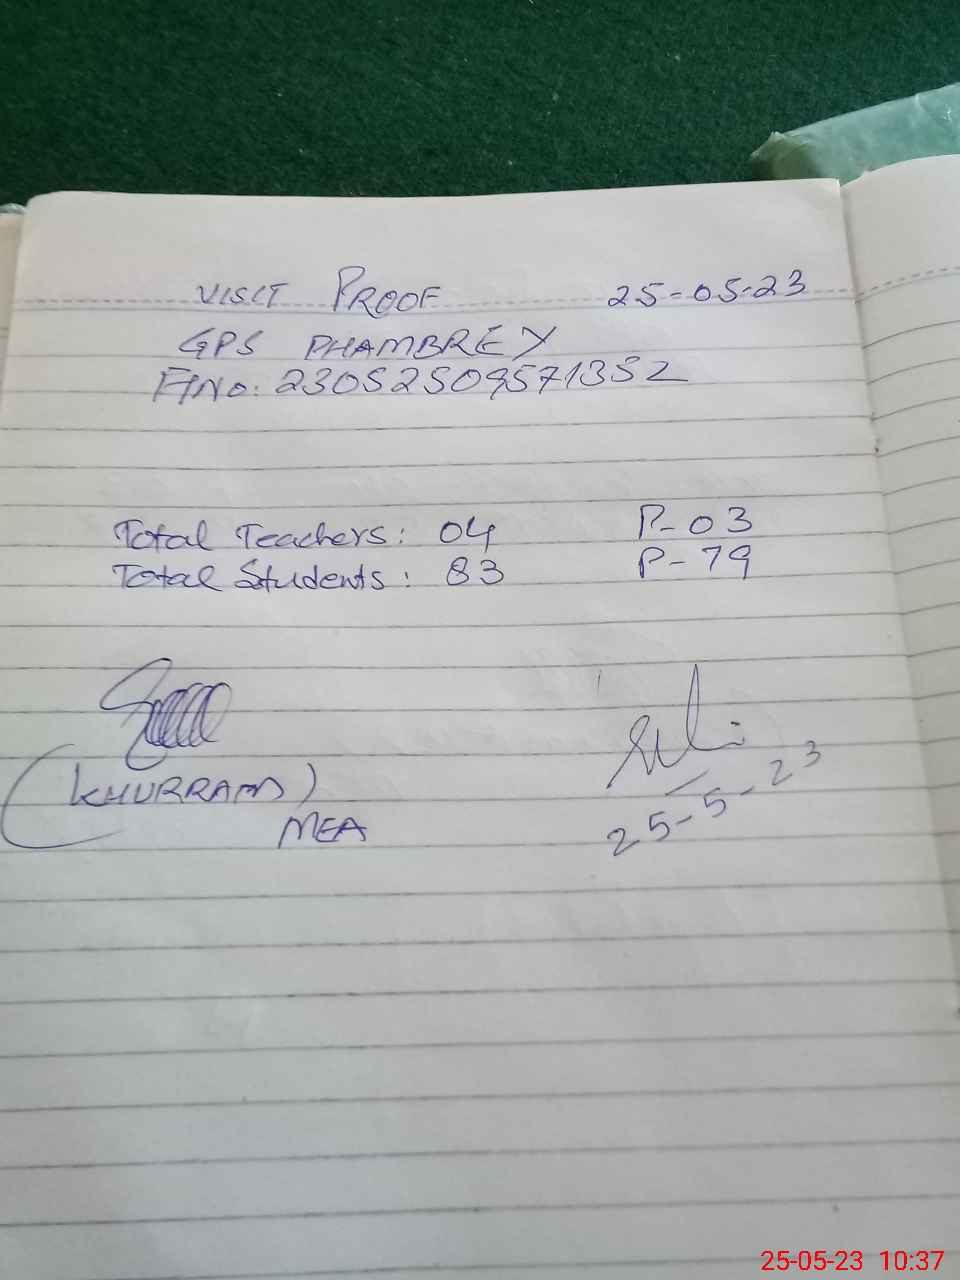 VISIT PROOF 25-05-23
GPS PHAMBREY
F/No: 23052509571352
Total Teachers: 04 P-03
Total Students: 83 P-79
(KHURRAM)
MEA
25-5-23
25-05-23 10:37